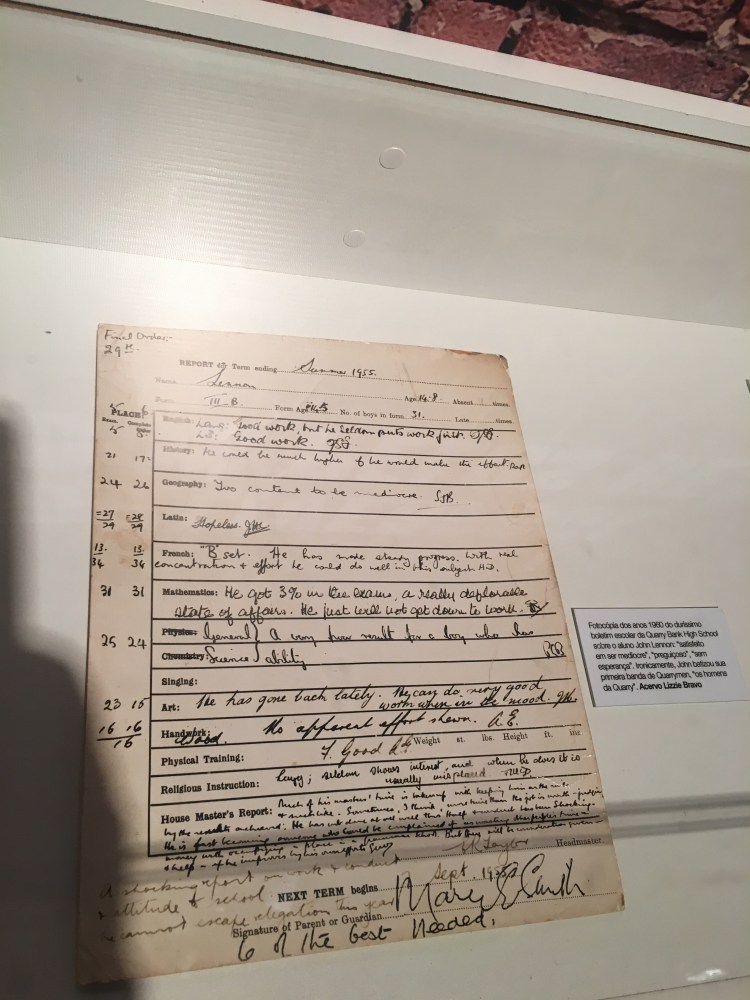 Final Order:-
29th
REPORT for Term ending Summer 1955.
Name Lennon Age 14.8 Absent times
Form III-B. Form Age No. of boys in form 31. Late times
PLACE
English: Lang: Good work, but he seldom puts work first.
Lit: Good work.
21 17 History: He could be much higher if he would make the effort.
24 26 Geography: Too content to be mediocre.
=27 =28
29 29
Latin: Hopeless.
13 13
34 34
French: "B" set. He has made steady progress. With real
concentration + effort he could do well in this subject.
31 31 Mathematics: He got 3% in the exam, a really deplorable
state of affairs. He just will not get down to work.
25 24 Physics: General A very poor result for a boy who has
Chemistry: Science ability
Singing:
23 15 Art: He has gone back lately. He can do very good
work when in the mood.
16 16
16
Handwork: Wood. No apparent effort shewn. A.E.
Physical Training: F. Good Weight st. lbs. Height ft. ins
Religious Instruction: Lazy; seldom shows interest, and when he does it is
usually misplaced
House Master's Report: Much of his masters' time is taken up with
Sometimes, I think, more time than the job is worth - judging
by the results achieved. He has not done at all well this
He is fast becoming someone who could be complained of as wasting the
money with occupying a place in a grammar school. But
help - if he improves by his own efforts
Headmaster
A shocking report on work & conduct
& attitude to school
& cannot escape relegation this year
NEXT TERM begins Sept. 1955
Signature of Parent or Guardian Mary E Smith
6 of the best needed.
Fotocópia dos anos 1960 do duríssimo
boletim escolar da Quarry Bank High School
sobre o aluno John Lennon: "satisfeito
em ser medíocre", "preguiçoso", "sem
esperança". Ironicamente, John batizou sua
primeira banda de Quarrymen, "os homens
da Quarry". Acervo Lizzie Bravo